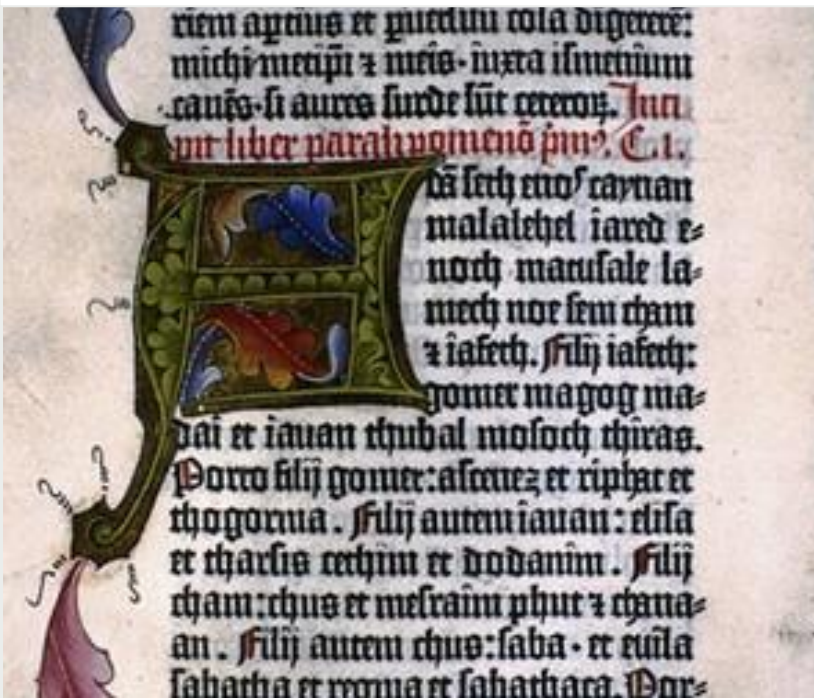 riem aptius et p uersuū cola digererē:
michimetip̄i ⁊ meis· iuxta ismenium
canēs·si aures surde sūt ceteroꝝ. Inci
pit liber paralipomenō p̄mꝰ. C. i.
Adā seth enos caynan
malalehel iared e⸗
noch matusale la⸗
mech noe sem cham
⁊ iafeth. Filij iafeth:
gomer magog ma⸗
dai et iauan thubal mosoch thiras.
Porro filij gomer: ascenez et riphat et
thogorma. Filij autem iauan: elisa
et tharsis cethim et dodanim. Filij
cham: chus et mesraim phut ⁊ chana⸗
an. Filij autem chus: saba· et euila
sabatha et regma et sabathaca. Por⸗